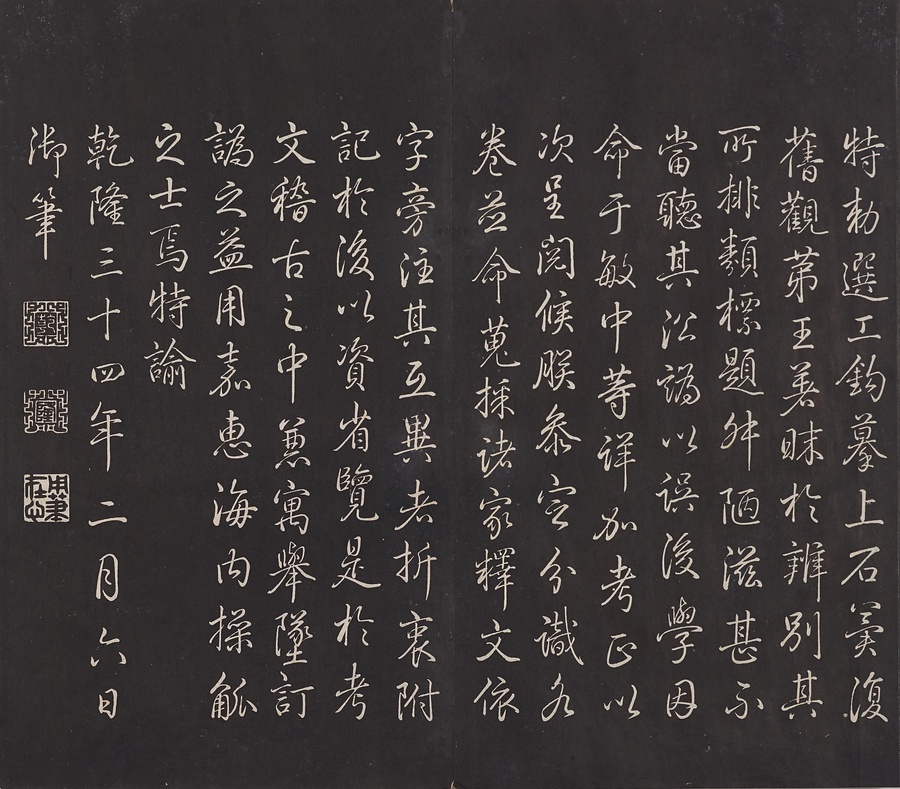 特勅選工鈎摹上石冀復
舊觀第王著昧於辨別其
所排類標題舛陋滋甚不
當聽其沿譌以誤後學因
命于敏中等詳加考正以
次呈閱候朕叅定分識各
卷並命蒐採諸家釋文依
字旁注其互異者折衷附
記於後以資省覽是於考
文稽古之中兼寓舉墜訂
譌之益用嘉惠海內操觚
之士焉特諭
乾隆三十四年二月六日
御筆
乾
隆
用筆在心